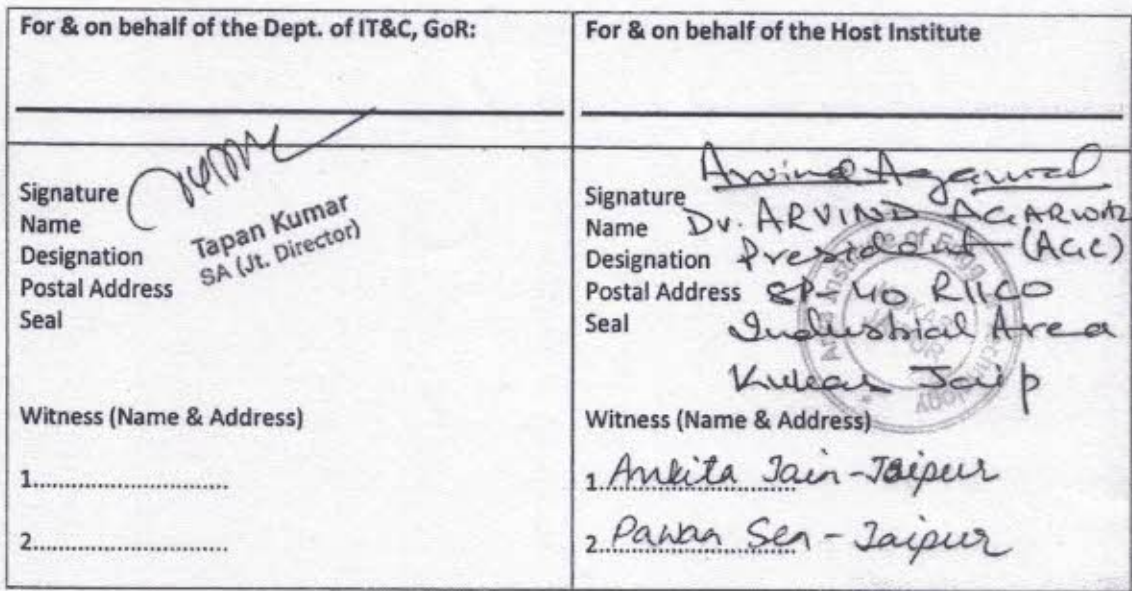 For & on behalf of the Dept. of IT&C, GoR:
Signature
Name
Tapan Kumar
Designation
SA (Jt. Director)
Postal Address
Seal
Witness (Name & Address)
1............................
2............................
For & on behalf of the Host Institute
Signature Arvind Agarwal
Name Dr. ARVIND AGARWAL
Designation President (AGC)
Postal Address SP-40 RIICO
Seal Industrial Area
Kukas Jaip
Witness (Name & Address)
1. Ankita Jain-Jaipur
2. Pawan Sen - Jaipur